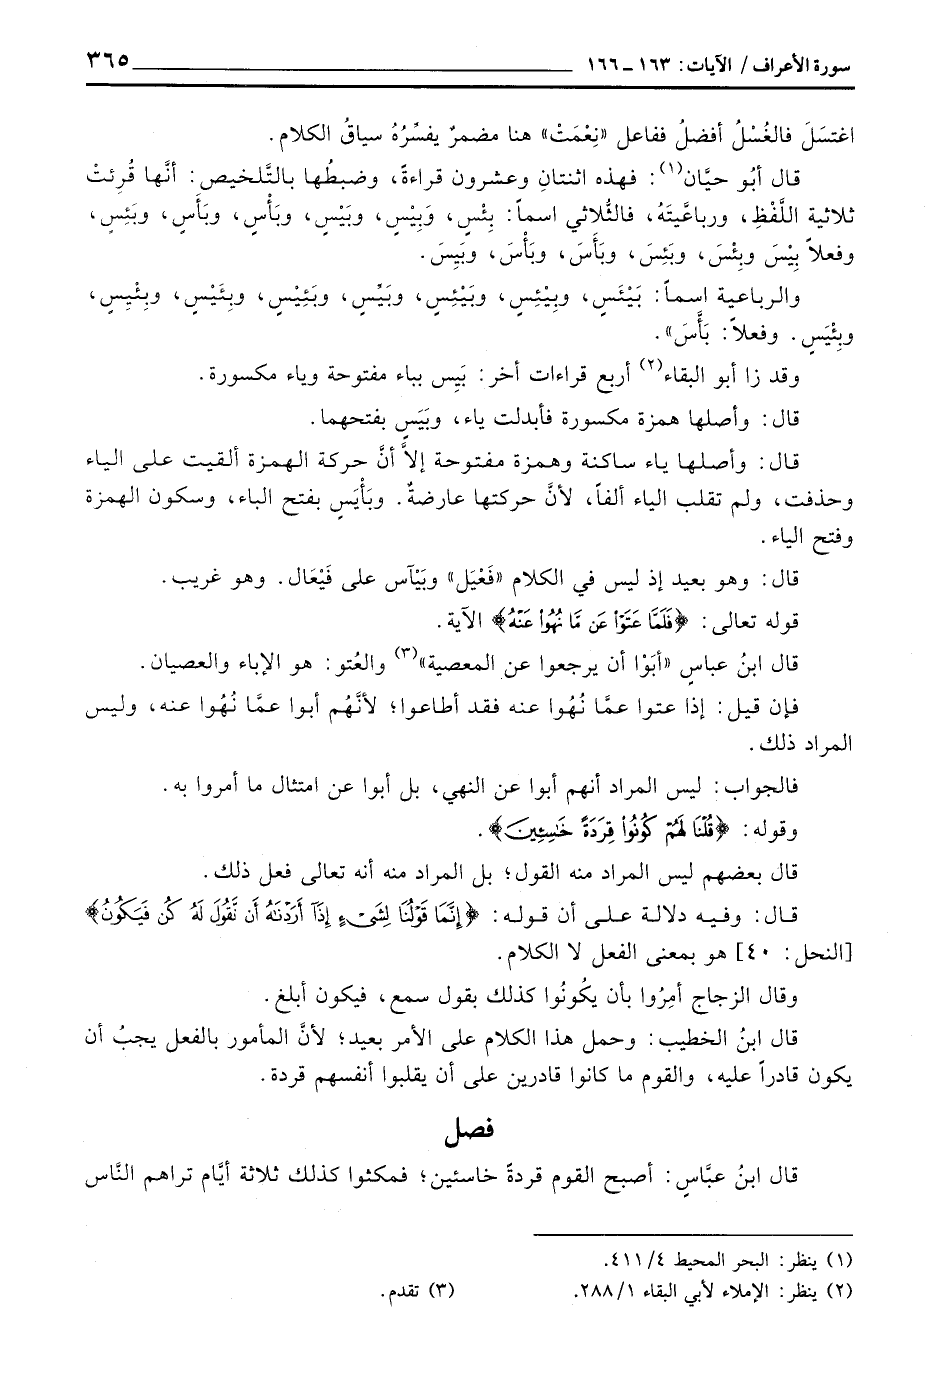 سورة الأعراف / الآيات: ١٦٣ ـ ١٦٦ ٣٦٥
اغتسَلَ فالغُسْلُ أفضلُ ففاعل «نِعْمَتْ» هنا مضمرٌ يفسِّرُهُ سياقُ الكلام.
قال أبُو حيَّان(١): فهذه اثنتانِ وعشرون قراءةً، وضبطُها بالتَّلخيص: أنَّها قُرِئتْ
ثلاثية اللَّفْظِ، ورباعيَّتَهُ، فالثُّلاثي اسماً: بِئْسٍ، وَبِيْسٍ، وبَيْسٍ، وبَأْسٍ، وبَأَسٍ، وبَئِسٍ،
وفعلاً بِيْسَ وبِئْسَ، وبَئِسَ، وبَأَسَ، وبَأْسَ، وبَيِسَ.
والرباعية اسماً: بَيْئَسٍ، وبِيْئِسٍ، وبَيْئِسٍ، وبَيِّسٍ، وبَئِيْسٍ، وبِئَيْسٍ، وبِئْيِسٍ،
وبِئْيَسٍ. وفعلاً: بَأَّسَ».
وقد زا أبو البقاء(٢) أربع قراءات أخر: بَيِس بباء مفتوحة وياء مكسورة.
قال: وأصلها همزة مكسورة فأبدلت ياء، وبَيَسٍ بفتحهما.
قال: وأصلها ياء ساكنة وهمزة مفتوحة إلاَّ أنَّ حركة الهمزة ألقيت على الياء
وحذفت، ولم تقلب الياء ألفاً، لأنَّ حركتها عارضةٌ. وبَأْيَسٍ بفتح الباء، وسكون الهمزة
وفتح الياء.
قال: وهو بعيد إذ ليس في الكلام «فَعْيَل» وبَيْآس على فَيْعَال. وهو غريب.
قوله تعالى: ﴿فَلَمَّا عَتَوْاْ عَن مَّا نُهُواْ عَنْهُ﴾ الآية.
قال ابنُ عباسٍ «أبَوْا أن يرجعوا عن المعصية»(٣) والعُتو: هو الإباء والعصيان.
فإن قيل: إذا عتوا عمَّا نُهُوا عنه فقد أطاعوا؛ لأنَّهُم أبوا عمَّا نُهُوا عنه، وليس
المراد ذلك.
فالجواب: ليس المراد أنهم أبوا عن النهي، بل أبوا عن امتثال ما أمروا به.
وقوله: ﴿قُلْنَا لَهُمْ كُونُواْ قِرَدَةً خَاسِئِينَ﴾.
قال بعضهم ليس المراد منه القول؛ بل المراد منه أنه تعالى فعل ذلك.
قال: وفيه دلالة على أن قوله: ﴿إِنَّمَا قَوْلُنَا لِشَيْءٍ إِذَا أَرَدْنَهُ أَن نَّقُولَ لَهُ كُن فَيَكُونُ﴾
[النحل: ٤٠] هو بمعنى الفعل لا الكلام.
وقال الزجاج أمِرُوا بأن يكُونُوا كذلك بقول سمع، فيكون أبلغ.
قال ابنُ الخطيب: وحمل هذا الكلام على الأمر بعيد؛ لأنَّ المأمور بالفعل يجبُ أن
يكون قادراً عليه، والقوم ما كانوا قادرين على أن يقلبوا أنفسهم قردة.
فصل
قال ابنُ عبَّاسٍ: أصبح القوم قردةً خاسئين؛ فمكثوا كذلك ثلاثة أيَّام تراهم النَّاس
(١) ينظر: البحر المحيط ٤/٤١١.
(٢) ينظر: الإملاء لأبي البقاء ١/٢٨٨. (٣) تقدم.